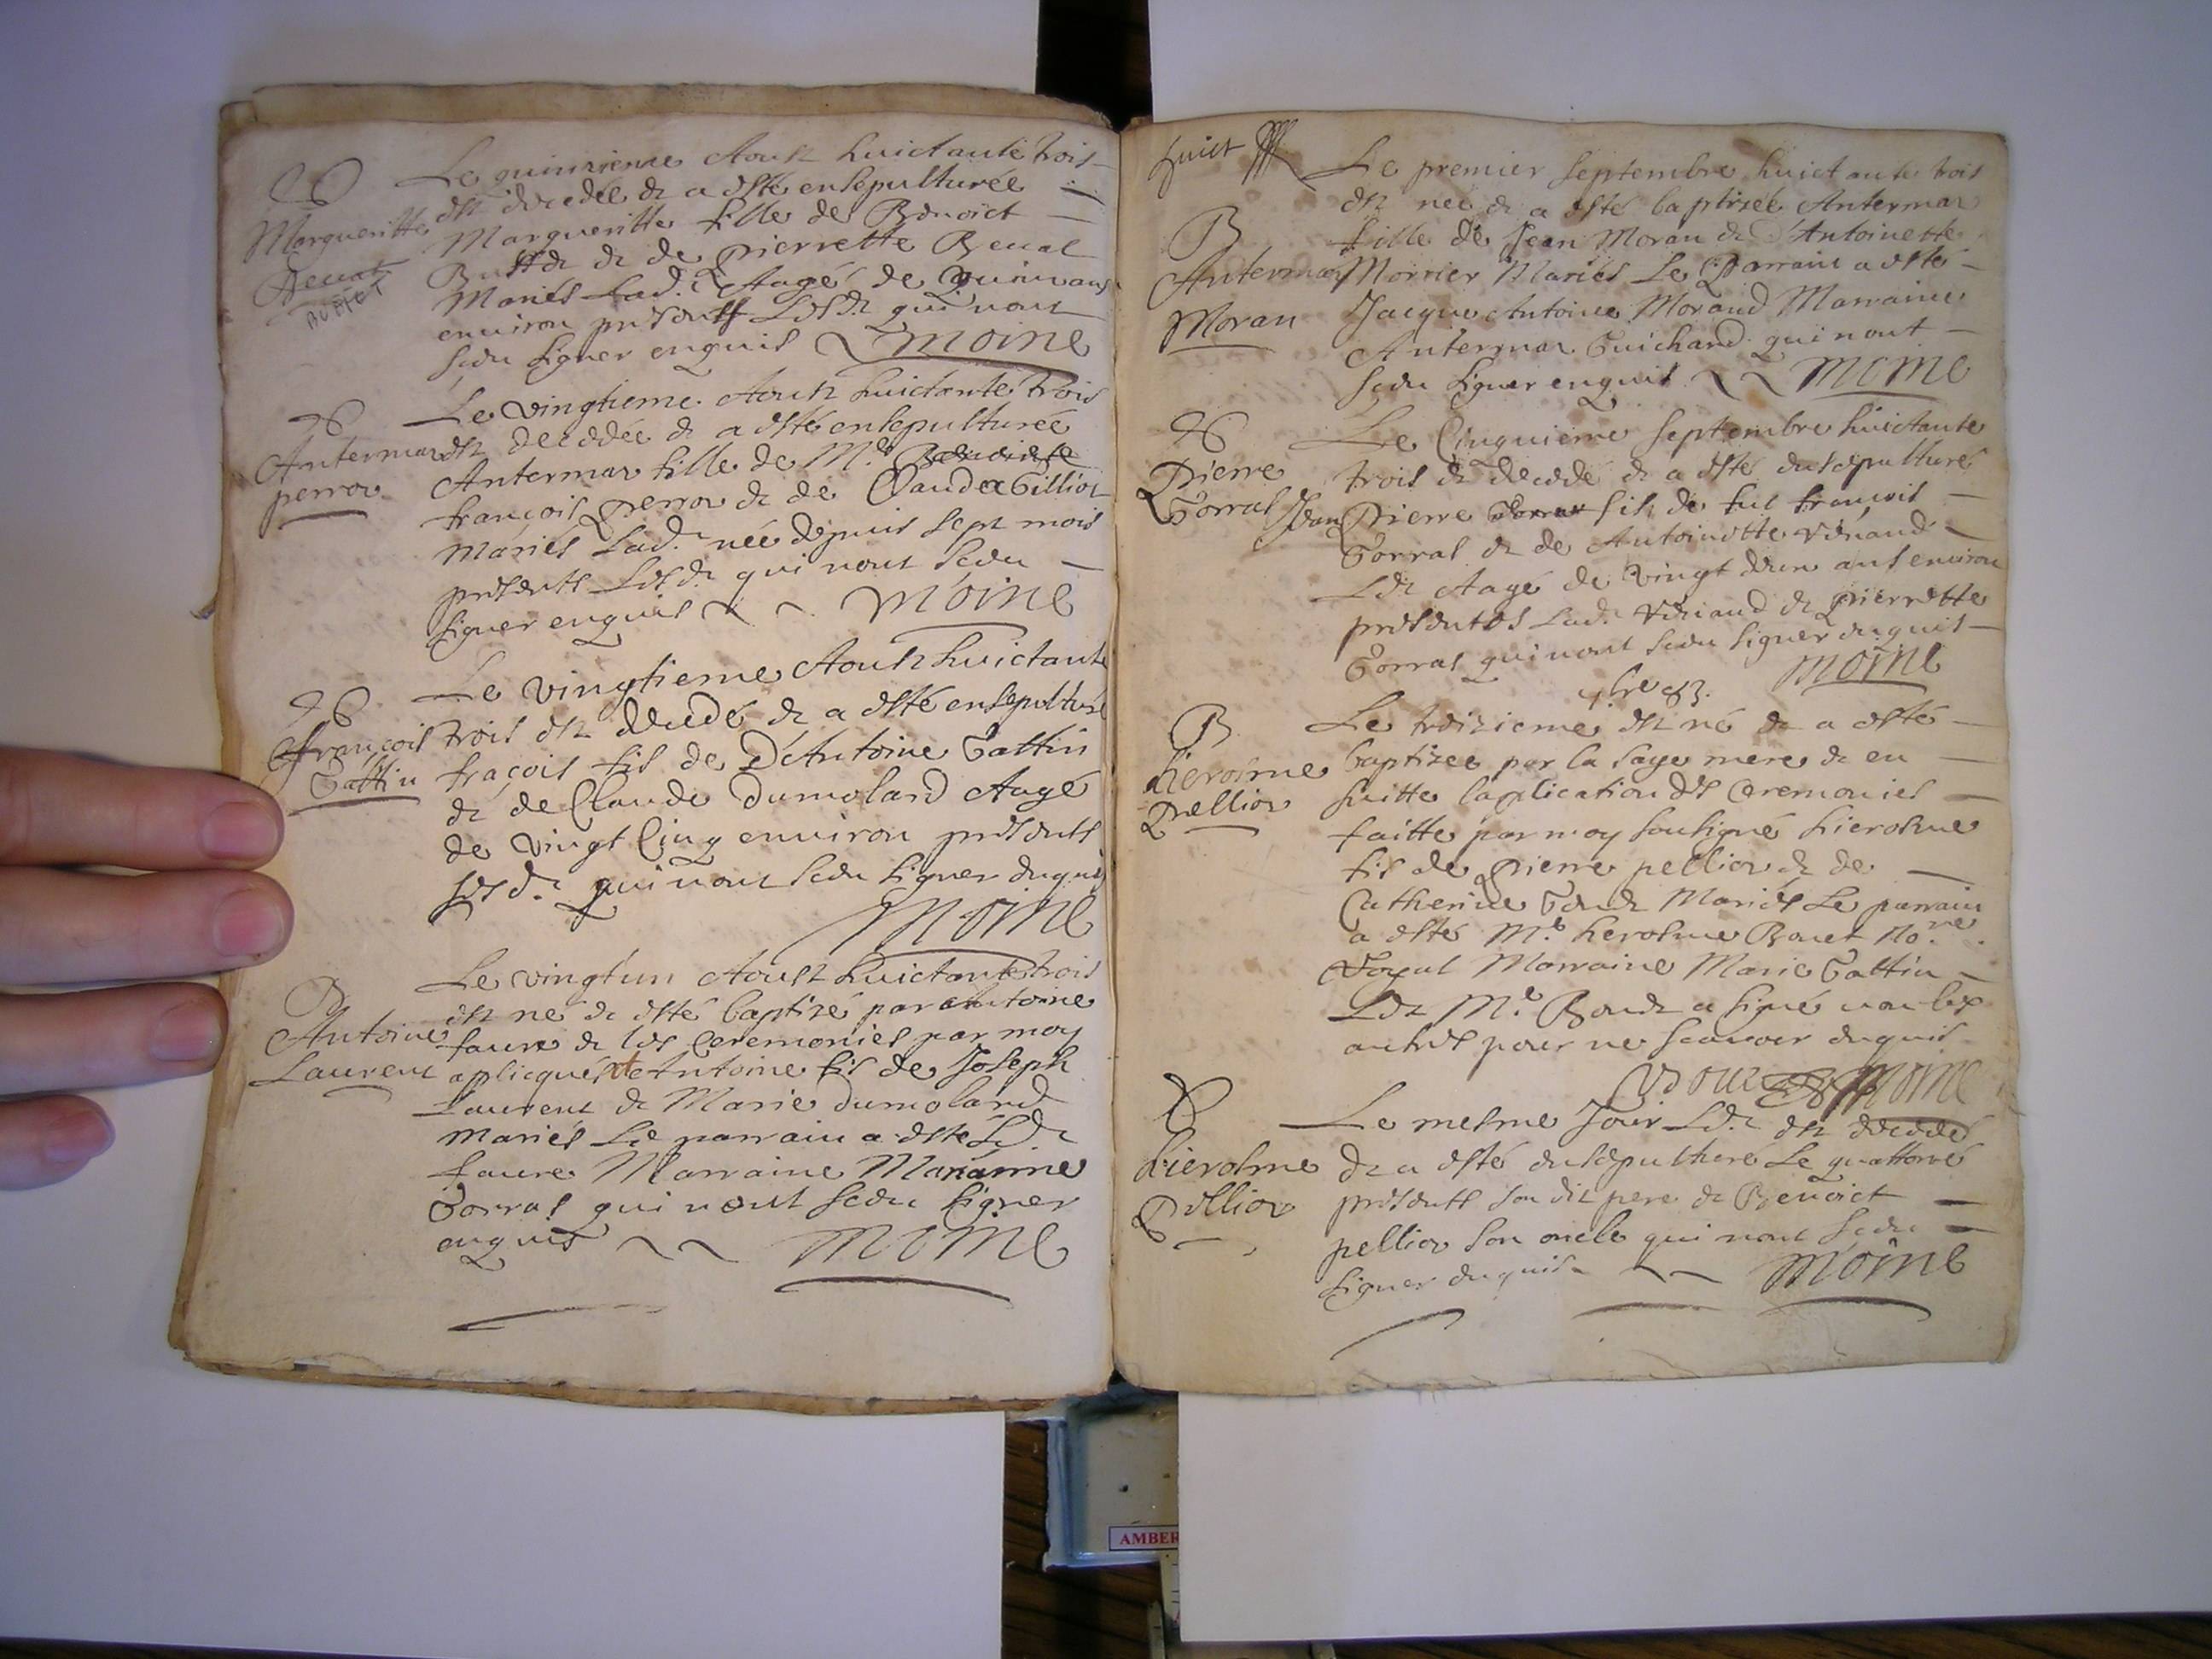 Le quinzieme Aoust huictante trois
est decedée & a esté ensepulturée
Margueritte
Margueritte fille de Benoict
Buffet & de pierrette Beuat
BUFFET
Mariés Lad. Aagé de quinz ans
enuiron presents Lesd. qui nont
sceu signer enquis Moine
Le vingtieme Aoust huictante trois
Antermar
perror
est decedée & a esté ensepulturée
Antermar fille de M.e
françois perror & de Clauda Gillior
Mariés Lad. née depuis sept mois
presents Lesd. qui nont sceu
signer enquis Moine
Le vingtieme Aoust huictante
françois
Gattin
trois est decedé & a esté ensepulturé
fraçois fils de Antoine Gattin
& de Claude Dumolard Aagé
de vingt Cinq enuiron presents
Lesd. qui nont sceu signer enquis
Moine
Le vingt un Aoust huictante trois
B
Antoine
Laurent
est né & esté baptizé par antoine
faure & les Ceremonies par moy
aplicquées Antoine fils de Joseph
Laurent & Marie dumolard
Mariés Le parrain a esté Led.
faure Marraine Marianne
Gorras qui nont sceu signer
enquis Moine
huict
Le premier septembre huictante trois
est née & a esté baptisée Antermar
B
Antermar
Moran
fille de Jean Moran & Antoinette
Morrier Mariés Le Parrain a esté
Jacque Antoine Morand Marraine
Antermar Guichard qui nont
sceu signer enquis Moine
Le Cinquieme septembre huictante
Pierre
Gorras
trois & decedé & a esté ensepulturé
Jean Pierre fils de fut françois
Gorras & de Antoinette Veriand
Led. Aagé de vingt deux ans enuiron
presentes Lad. Veriand & pierrette
Gorras qui nont sceu signer enquis
Moine
7bre 83.
B
hierosme
Pellior
Le treizieme est né & a esté
baptizee par la sage mere & en
suitte laplication des Ceremonies
faitte par moy sousigné hierosme
fils de pierre pellior & de
Catherine Mariés Le parrain
a esté M.e herosme Bouet No.re
Royal Marraine Marie Gattin
Led. M.e Bouet a signé non les
autres pour ne scauoir enquis
Bouet Moine
hierosme
Pellior
Le mesme Jour Led. est decedé
& a esté ensepulthure Le quattorze
presents son dit pere & Benoict
pellior son oncle qui nont sceu
signer enquis Moine
AMBER